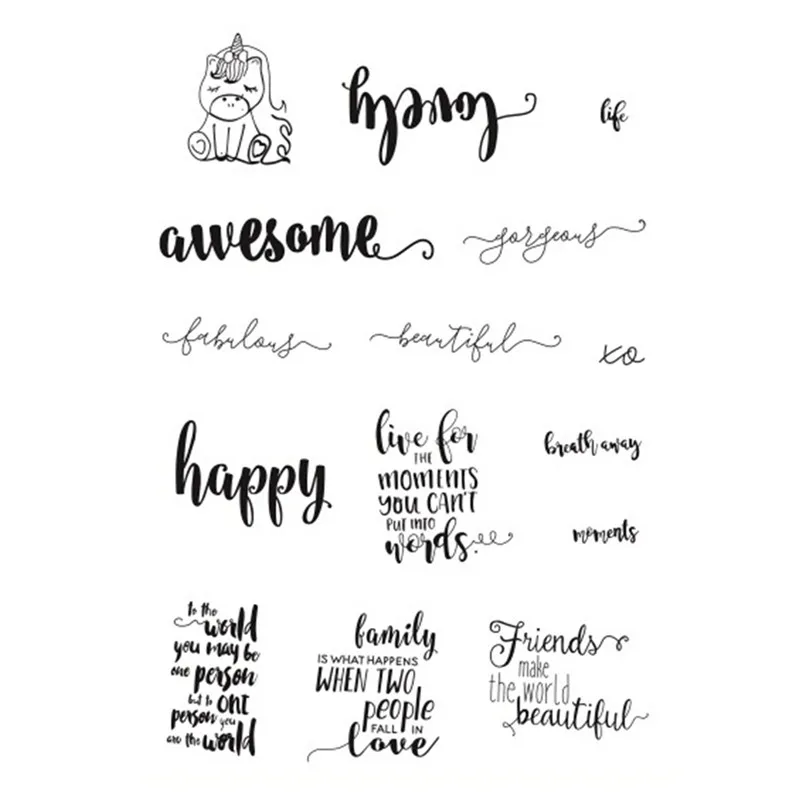 lovely
life
awesome
gorgeous
fabulous
beautiful
xo
happy
live for
THE
MOMENTS
YOU CAN'T
PUT INTO
words.
breath away
moments
to the
world
you may be
one person
but to ONE
person you
are the world
family
IS WHAT HAPPENS
WHEN TWO
people
FALL IN
love
Friends
make
the world
beautiful